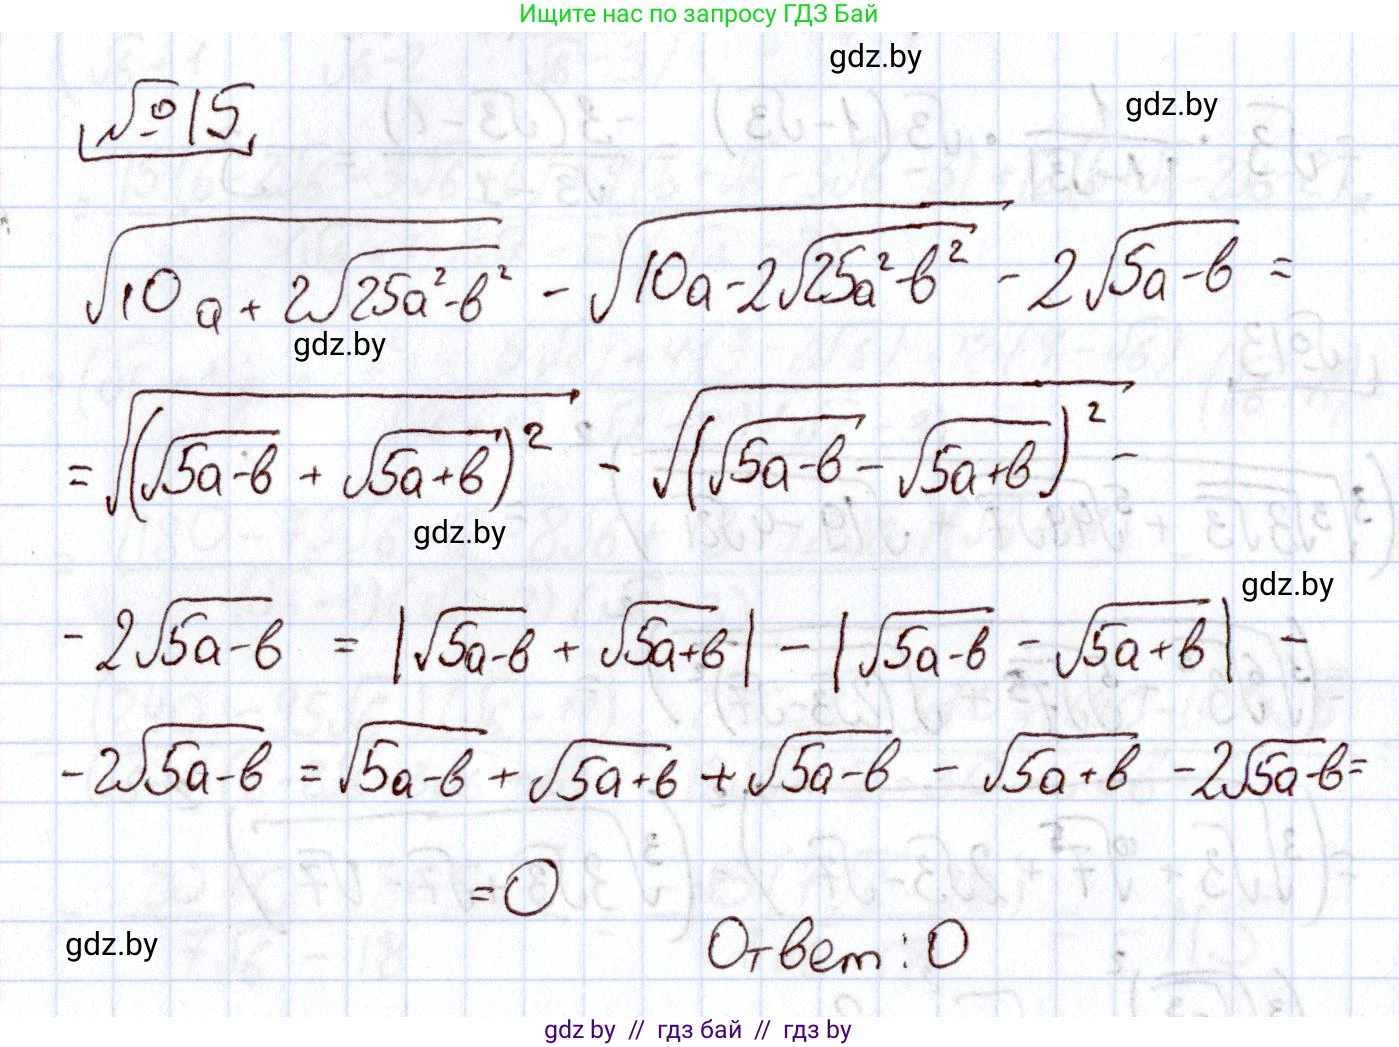 Ищите нас по запросу ГДЗ Бай
gdz.by
gdz.by
№15
√(10a + 2√(25a²-b²)) - √(10a - 2√(25a²-b²)) - 2√(5a-b) =
gdz.by
= √((√(5a-b) + √(5a+b))²) - √((√(5a-b) - √(5a+b))²) -
gdz.by
gdz.by
- 2√(5a-b) = |√(5a-b) + √(5a+b)| - |√(5a-b) - √(5a+b)| -
- 2√(5a-b) = √(5a-b) + √(5a+b) + √(5a-b) - √(5a+b) - 2√(5a-b) =
= 0
gdz.by
Ответ: 0
gdz.by // гдз бай // гдз by